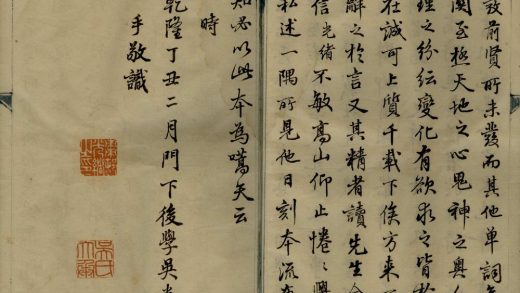 前賢所未發而其他單詞
至極天地之心鬼神之奧
理之紛紜變化有欲求之皆
在誠可上質千載下俟方來
辭之於言又其精者讀先生
信光緒不敏高山仰止惓〻興
私述一隅所見他日刻本流布
知必以此本為嚆矢云
時
乾隆丁丑二月門下後學吳光
手敬識